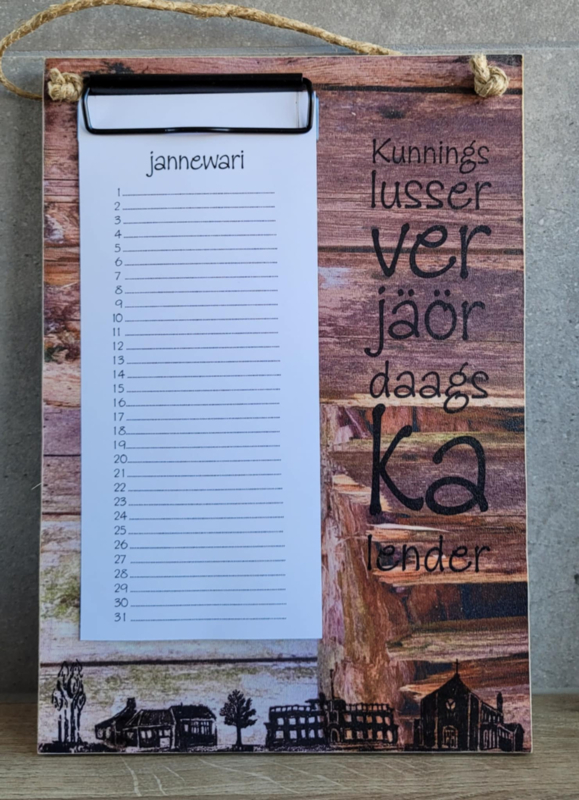 jannewari
1
2
3
4
5
6
7
8
9
10
11
12
13
14
15
16
17
18
19
20
21
22
23
24
25
26
27
28
29
30
31
Kunnings
lusser
ver
jäör
daags
Ka
lender